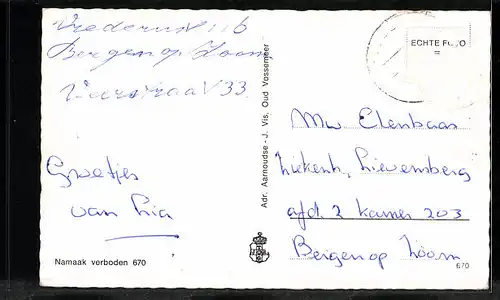 Bergen op Zoom
33
Groetjes
van Lia
Namaak verboden 670
Adr. Aarnoudse - J. Vis, Oud Vossemeer
ECHTE FOTO
=
Mw Elenbaas
Ziekenh. Lievensberg
afd. 2 kamer 203
Bergen op Zoom
670